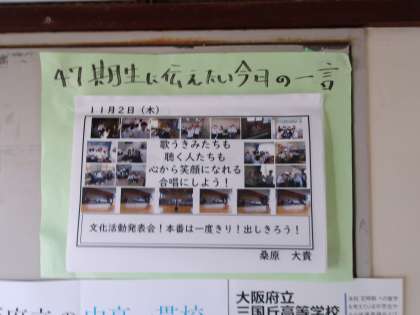 47期生に伝えたい今日の一言
11月2日（木）
歌うきみたちも
聴く人たちも
心から笑顔になれる
合唱にしよう！
文化活動発表会！本番は一度きり！出しきろう！
桑原 大貴
大阪府立
三国丘高等学校